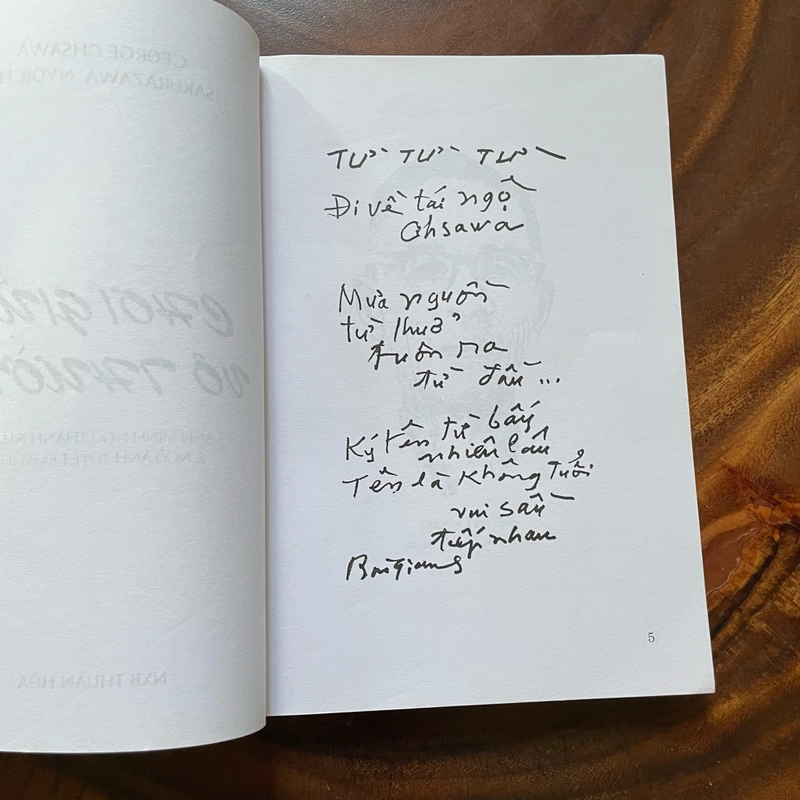 GEORGE OHSAWA
(SAKURAZAWA NYOICH
CHƠI GIỮ
VÔ THƯỜ
ANH MINH NGÔ THÀNH NH
& NGÔ ÁNH TUYẾT
NXB THUẬN HÓA
Từ Từ Từ
Đi về tái ngộ
Ohsawa
Mưa nguồn
từ thuở
tuôn ra
từ đầu ...
Ký tên từ bấy
nhiên lâu
Tên là Không Tuổi
vui sầu
tiếp nhau
Bùi Giáng
5